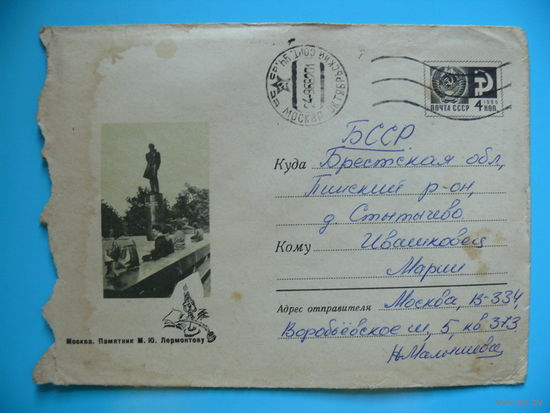 ПОЧТА СССР 4 КОП.
1966
МОСКВА
БССР
Куда Брестская обл,
Пинский р-он,
д. Стытычево
Кому Ивашковец
Марии
Адрес отправителя Москва, В-334,
Воробьёвское ш, 5, кв 373
Н. Малышева
Москва. Памятник М. Ю. Лермонтову